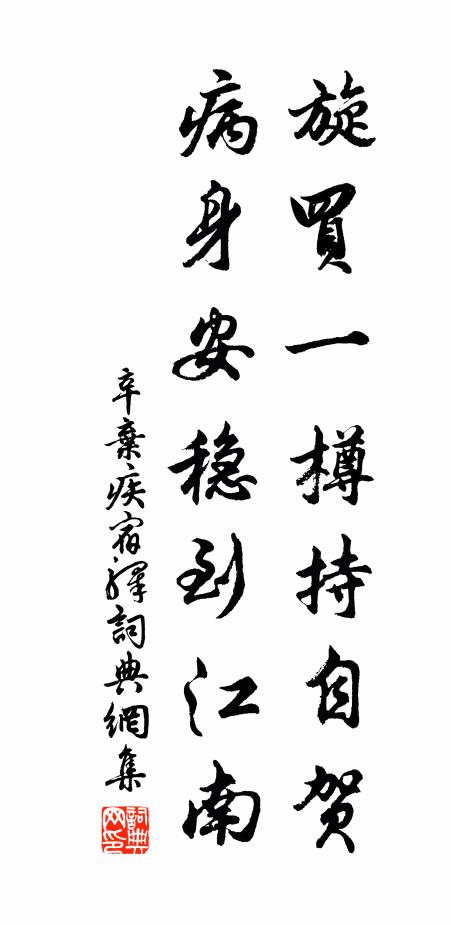 旋買一樽持自賀
病身安稳到江南
辛棄疾宿驛詞典網集
詞典網印